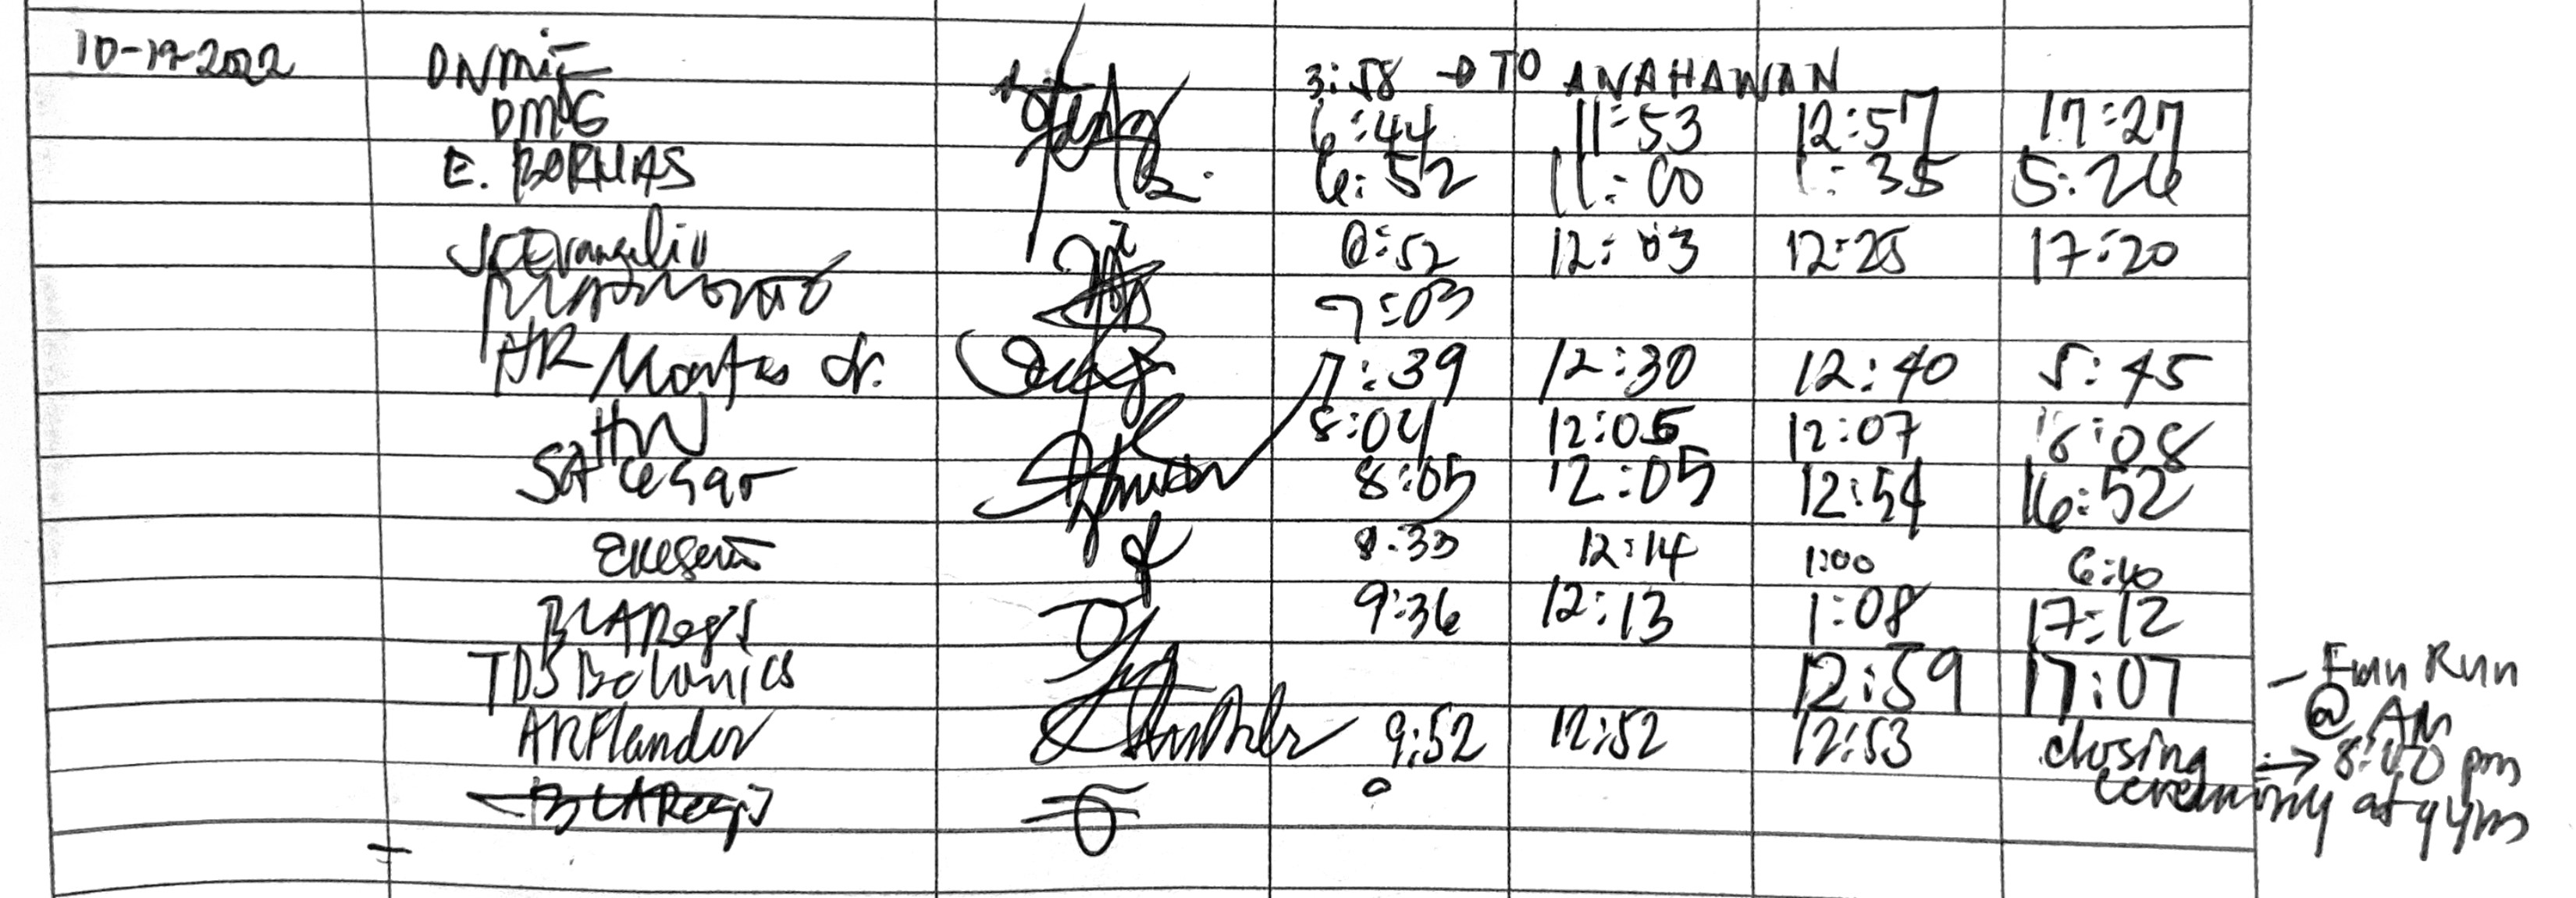 10-19-2022 3:58 → TO ANAHAWAN
DMG 6:44 11:53 12:57 17:27
E. BORNAS 6:52 11:00 1:35 5:26
JC Evangelio 6:52 12:03 12:25 17:20
7:03
HR Montes Jr. 7:39 12:30 12:40 5:45
HW 8:04 12:05 12:07 6:08
SA Cesar 8:05 12:05 12:54 16:52
8:33 12:14 1:00 6:40
BLARegis 9:36 12:13 1:08 17:12
TDS Bolonics 12:59 17:07 - Fun Run
@ AM
ARFlandor 9:52 12:52 12:53 closing → 8:00 pm
BLARegis ceremony at gym